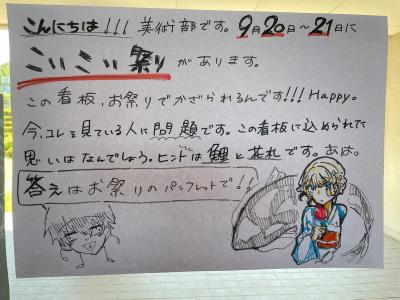 こんにちは!!! 美術部です。9月20日〜21日に
こいこい祭りがあります。
この看板、お祭りでかざられるんです!!! Happy。
今、コレを見ている人に問題です。この看板に込められた
思いはなんでしょう。ヒントは鯉と花札です。あは。
答えはお祭りのパンフレットで!!